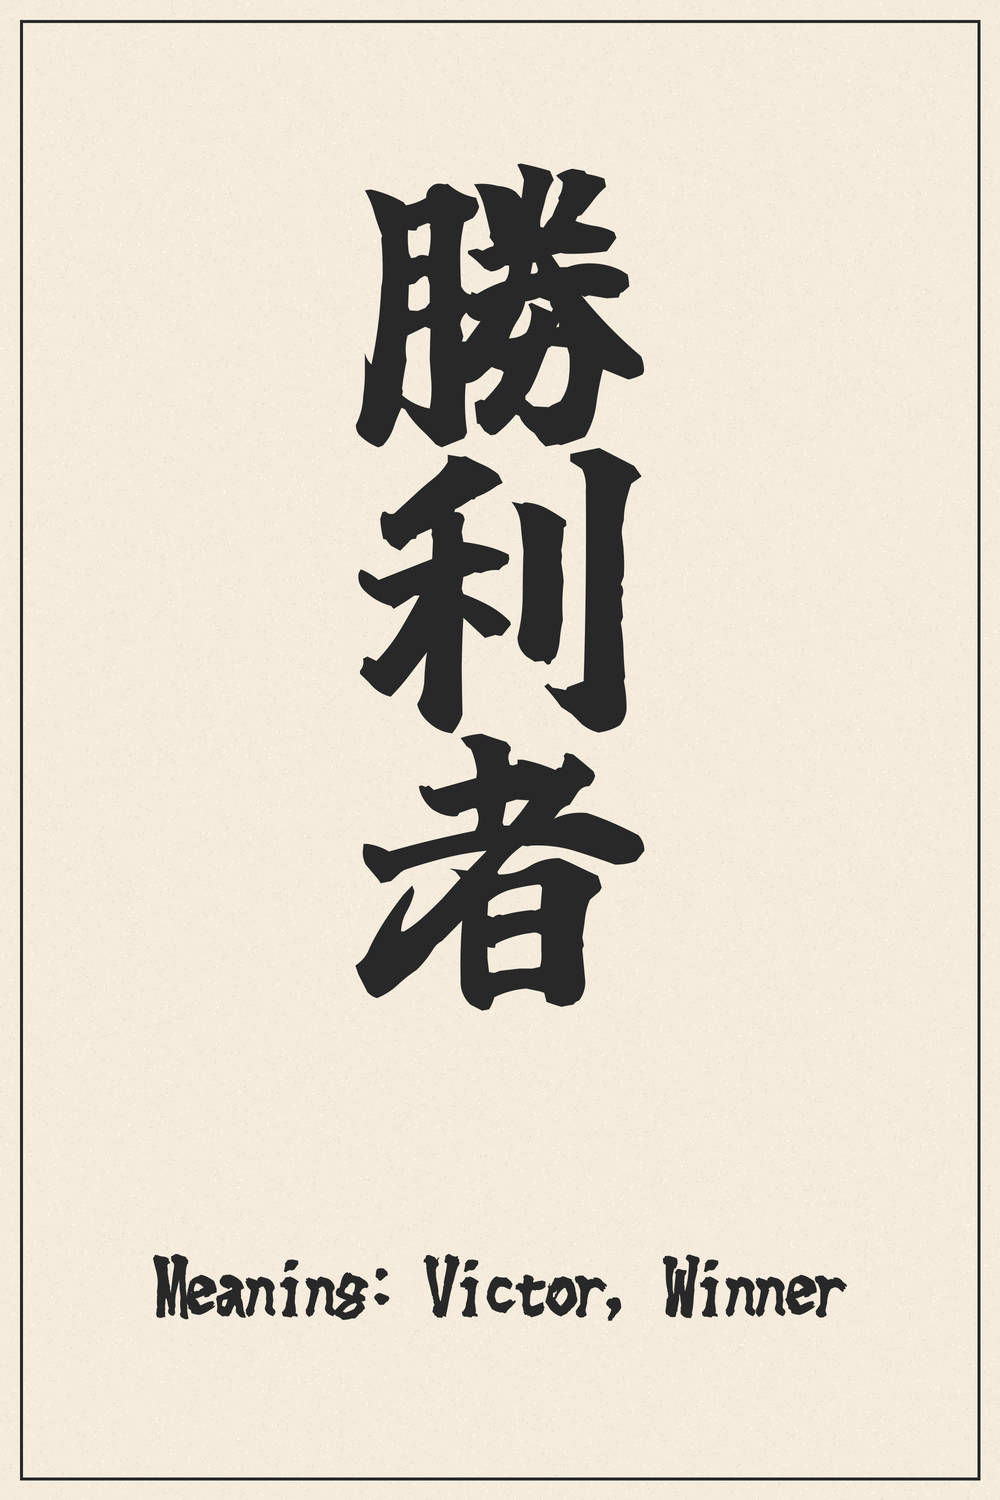 勝利者
Meaning: Victor, Winner